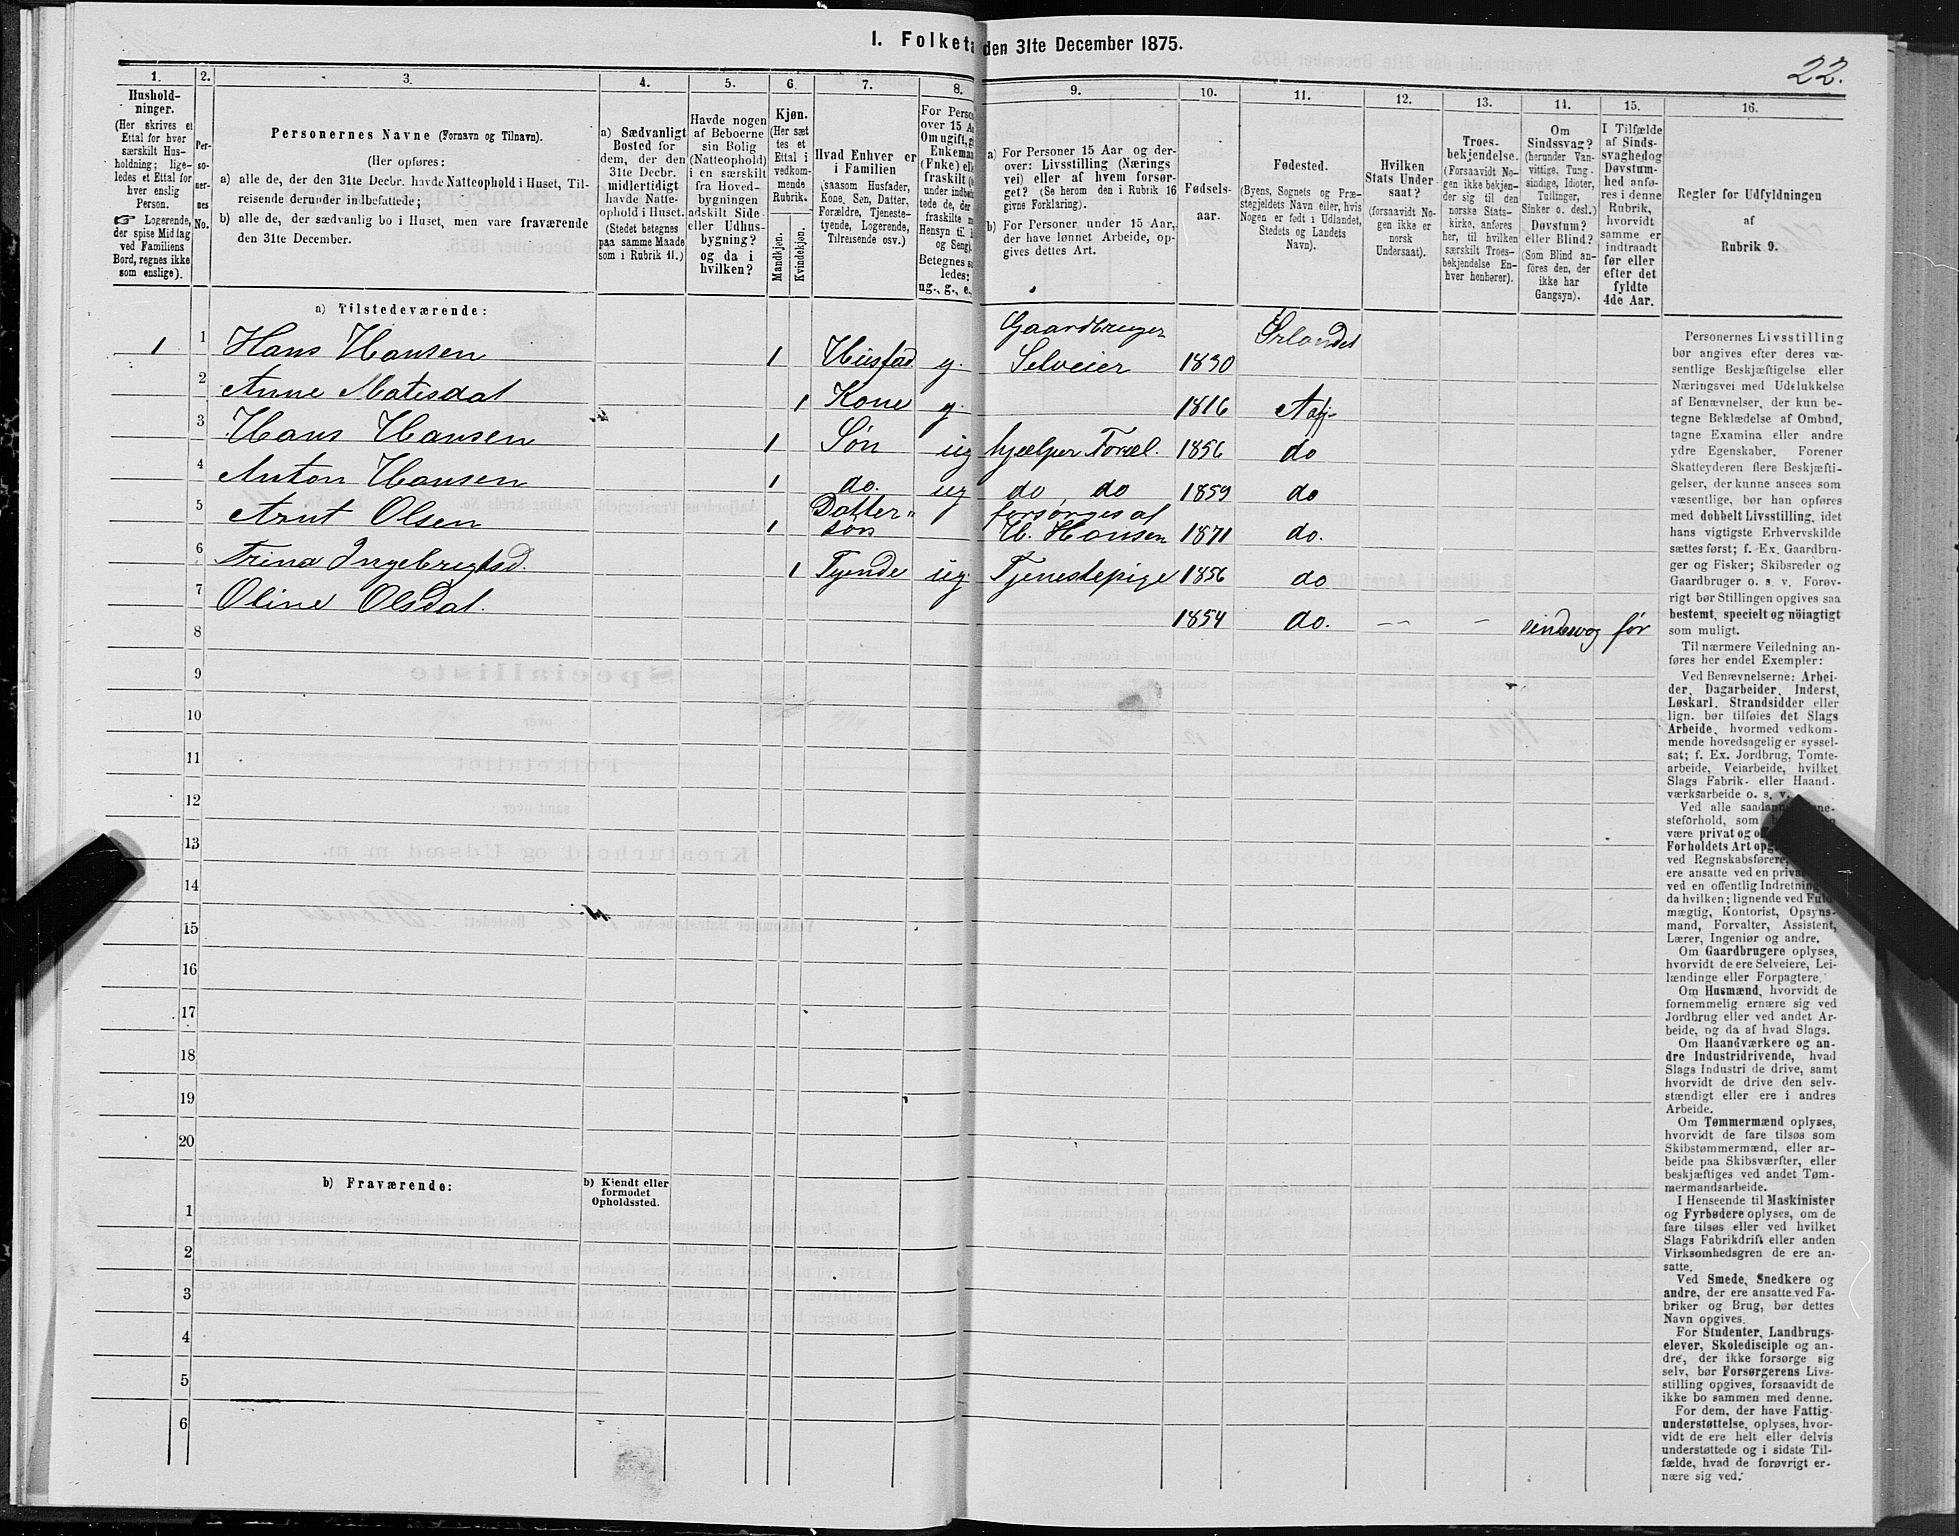 I. Folketa den 31te December 1875.
22.
1. 2. 3. 4. 5. 6. 7. 8. 9. 10. 11. 12. 13. 14. 15. 16.
Hushold-
ninger.
(Her skrives et
Ettal for hver
særskilt Hus-
holdning; lige-
ledes et Ettal for
hver enslig
Person.
☞ Logerende,
der spise Middag
ved Familiens
Bord, regnes ikke
som enslige).
Per-
so-
ner-
nes
No.
Personernes Navne (Fornavn og Tilnavn).
(Her opføres:
a) alle de, der den 31te Decbr. havde Natteophold i Huset, Til-
reisende derunder indbefattede;
b) alle de, der sædvanlig bo i Huset, men vare fraværende
den 31te December).
a) Sædvanligt
Bosted for
dem, der den
31te Decbr.
midlertidigt
havde Natte-
ophold i Huset.
(Stedet betegnes
paa samme Maade
som i Rubrik 11.)
Havde nogen
af Beboerne
sin Bolig
(Natteophold)
i en særskilt
fra Hoved-
bygningen
adskilt Side-
eller Udhus-
bygning?
og da i
hvilken?
Kjøn.
(Her sæt
tes et
Ettal i
vedkom-
mende
Rubrik.
Mandkjøn.
Kvindekjøn.
Hvad Enhver er
i Familien
(saasom Husfader,
Kone, Søn, Datter,
Forældre, Tjeneste-
tyende, Logerende,
Tilreisende osv.)
For Perso
over 15 A
Om ugift, g
Enkeman
(Fnke) ell
fraskilt (
under indbe
tede de, der
fraskilte
Hensyn til
og Seng).
Betegnes s
ledes:
ug., g., e.,
a) For Personer 15 Aar og der-
over: Livsstilling (Nærings
vei) eller af hvem forsør-
get? (Se herom den i Rubrik 16
givne Forklaring).
b) For Personer under 15 Aar,
der have lønnet Arbeide, op-
gives dettes Art.
Fødsels-
aar.
Fødested.
(Byens, Sognets og Præ-
stegjeldets Navn eller, hvis
Nogen er født i Udlandet,
Stedets og Landets
Navn).
Hvilken
Stats Under
saat?
(forsaavidt No-
gen ikke er
norsk
Undersaat).
Troes-
bekjendelse.
(Forsaavidt No-
gen ikke bekjen-
der sig til den
norske Stats-
kirke, anføres
her, til hvilken
særskilt Troes-
bekjendelse En-
hver henhører).
Om
Sindssvag?
(herunder Van-
vittige, Tung-
sindige, Idioter,
Tullinger,
Sinker o. desl.)
Døvstum?
eller Blind?
(Som Blind an-
føres den, der
ikke har
Gangsyn).
I Tilfælde
af Sinds-
svaghed og
Døvstum-
hed anfø-
res i denne
Rubrik,
hvorvidt
samme er
indtraadt
før eller
efter det
fyldte
4de Aar.
Regler for Udfyldningen
af
Rubrik 9.
a) Tilstedeværende:
1 1 Hans Hansen 1 Husfad g. Gaardbruger
Selveier 1830 Ørlandet
2 Anne Matisdat 1 Kone g. 1816 Aafj.
3 Hans Hansen 1 Søn ug hjælper Foræl. 1856 do
4 Anton Hansen 1 do. ug do do 1859 do
5 Arnt Olsen 1 Datter-
søn forsørges af
H. Hansen 1871 do.
6 Trina Ingebrigtsd. 1 Tyende ug. Tjenestepige 1856 do
7 Oline Olsdat. 1854 do. — — sindsvag før
8
9
10
11
12
13
14
15
16
17
18
19
20
b) Fraværende:
b) Kjendt eller
formodet
Opholdssted.
1
2
3
4
5
6
Personernes Livsstilling
bør angives efter deres væ-
sentlige Beskjæftigelse eller
Næringsvei med Udelukkelse
af Benævnelser, der kun be-
tegne Beklædelse af Ombud,
tagne Examina eller andre
ydre Egenskaber. Forener
Skatteyderen flere Beskjæfti-
gelser, der kunne ansees som
væsentlige, bør han opføres
med dobbelt Livsstilling, idet
hans vigtigste Erhvervskilde
sættes først; f. Ex. Gaardbru-
ger og Fisker; Skibsreder og
Gaardbruger o. s. v. Forøv-
rigt bør Stillingen opgives saa
bestemt, specielt og nöiagtigt
som muligt.
Til nærmere Veiledning an-
føres her endel Exempler:
Ved Benævnelserne: Arbei-
der, Dagarbeider, Inderst,
Løskarl, Strandsidder eller
lign. bør tilføies det Slags
Arbeide, hvormed vedkom-
mende hovedsagelig er syssel-
sat; f. Ex. Jordbrug, Tomte-
arbeide, Veiarbeide, hvilket
Slags Fabrik- eller Haand-
værksarbeide o. s. v.
Ved alle saadanne
steforhold, som
være privat og
Forholdets Art
ved Regnskabsførere,
ere ansatte ved en privat
ved en offentlig Indretning
da hvilken; lignende ved
mægtig, Kontorist, Opsyns-
mand, Forvalter, Assistent,
Lærer, Ingeniør og andre.
Om Gaardbrugere oplyses,
hvorvidt de ere Selveiere, Lei-
lændinge eller Forpagtere.
Om Husmænd, hvorvidt de
fornemmelig ernære sig ved
Jordbrug eller ved andet Ar-
beide, og da af hvad Slags.
Om Haandværkere og an-
dre Industridrivende, hvad
Slags Industri de drive, samt
hvorvidt de drive den selv-
stændigt eller ere i andres
Arbeide.
Om Tømmermænd oplyses,
hvorvidt de fare tilsøs som
Skibstømmermænd, eller ar-
beide paa Skibsværfter, eller
beskjæftiges ved andet Tøm-
mermandsarbeide.
I Henseende til Maskinister
og Fyrbødere oplyses, om de
fare tilsøs eller ved hvilket
Slags Fabrikdrift eller anden
Virksomhedsgren de ere an-
satte.
Ved Smede, Snedkere og
andre, der ere ansatte ved Fa-
briker og Brug, bør dettes
Navn opgives.
For Studenter, Landbrugs-
elever, Skoledisciple og an-
dre, der ikke forsørge sig
selv, bør Forsørgerens Livs-
stilling opgives, forsaavidt de
ikke bo sammen med denne.
For dem, der have Fattig-
understøttelse, oplyses, hvor-
vidt de ere helt eller delvis
understøttede og i sidste Til-
fælde, hvad de forøvrigt er-
nære sig ved.